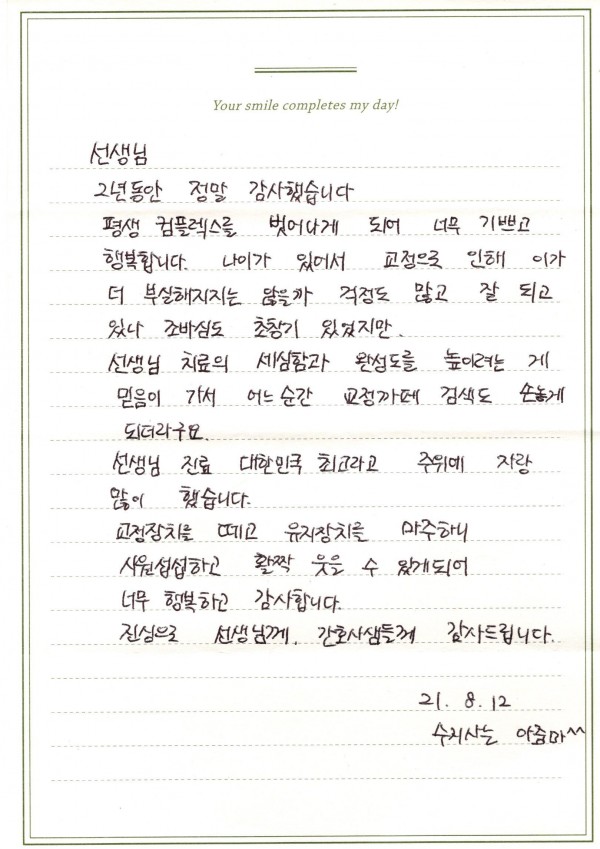 Your smile completes my day!
선생님
2년동안 정말 감사했습니다
평생 컴플렉스를 벗어나게 되어 너무 기쁘고
행복합니다. 나이가 있어서 교정으로 인해 이가
더 부실해지지는 않을까 걱정도 많고 잘 되고
있나 조바심도 초창기 있었지만.
선생님 치료의 세심함과 완성도를 높이려는 게
믿음이 가서 어느순간 교정까페 검색도 손놓게
되더라구요.
선생님 진료 대한민국 최고라고 주위에 자랑
많이 했습니다.
교정장치를 떼고 유지장치를 마주하니
시원섭섭하고 활짝 웃을 수 있게되어
너무 행복하고 감사합니다.
진심으로 선생님께, 간호사샘들께 감사드립니다.
21. 8. 12
수지사는 아줌마^^